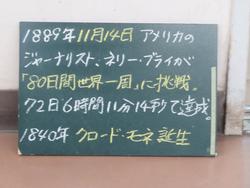 1889年11月14日 アメリカの
ジャーナリスト、ネリー・ブライが
「80日間世界一周」に挑戦。
72日6時間11分14秒で達成。
1840年 クロード・モネ誕生